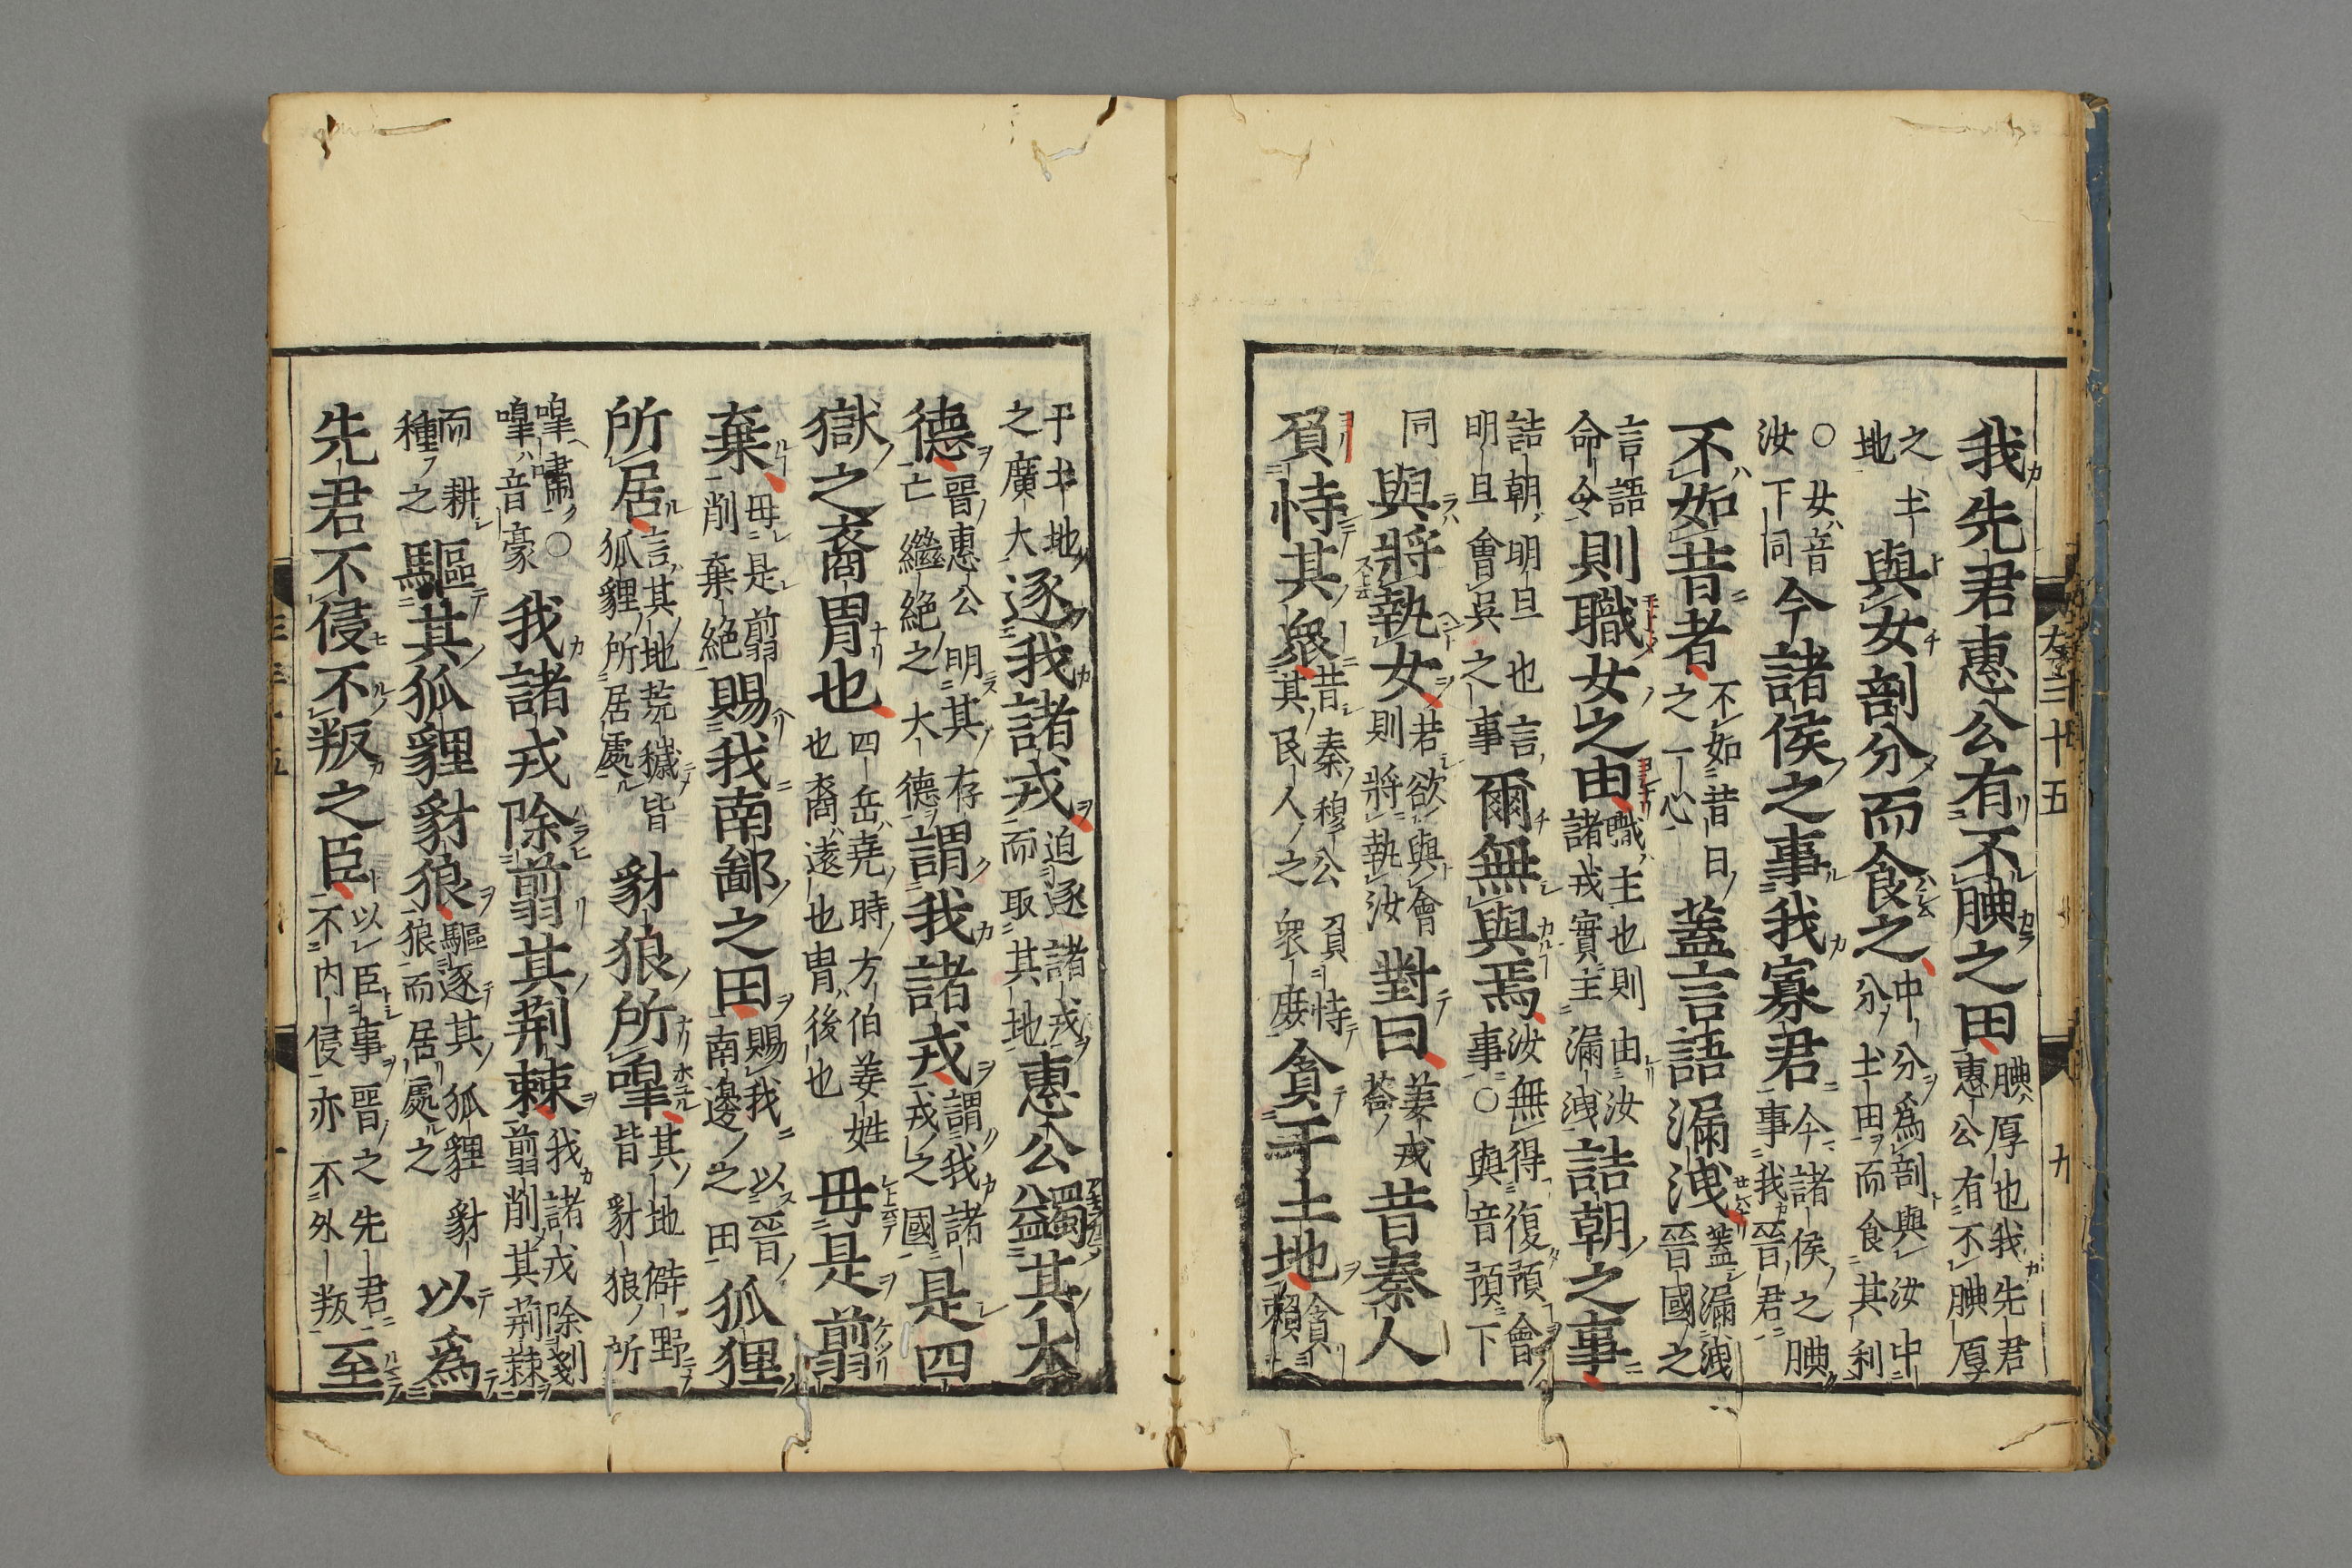 我先君惠公有不腆之田腆厚也我先君惠公有不腆厚
之土地與女剖分而食之中分爲剖與汝中分土田而食其利
○女音汝下同今諸侯之事我寡君今諸侯之事我晉君腆
不如昔者不如昔日之一心蓋言語漏洩蓋漏洩晉國之
言語命令則職女之由職主也則諸戎實主由汝漏洩詰朝之事
詰朝明旦也言明旦會吳之事爾無與焉汝無得復預會事○與音預下
同與將執女若欲與會則將執汝對曰姜戎荅昔秦人
負恃其衆昔秦穆公負恃其民人之衆庶貪于土地貪賴
于土地之廣大逐我諸戎迫逐諸戎而取其地惠公蠲其大
德晉惠公明其存亡繼絶之大德謂我諸戎謂我諸戎之國是四
嶽之裔胄也四岳堯時方伯姜姓也裔遠也胄後也毋是翦
棄毋是翦削棄絶賜我南鄙之田賜我以晉南邊之田狐狸
所居言其地荒穢皆狐貍所居處豺狼所嘷其地僻野皆豺狼所
嘷嘯○嘷音豪我諸戎除翦其荊棘我諸戎除剗翦削其荊棘
而耕種之驅其狐貍豺狼驅逐其狐貍豺狼而居處之以爲
先君不侵不叛之臣以臣事晉之先君不內侵亦不外叛至
左三十五
九